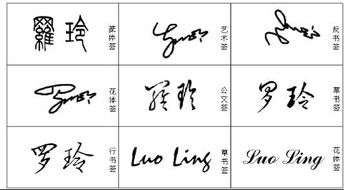 羅玲 篆体签
艺术签
反书签
花体签
羅玲 公文签
罗玲 草书签
罗玲 行书签
Luo Ling 草书签
Luo Ling 花体签